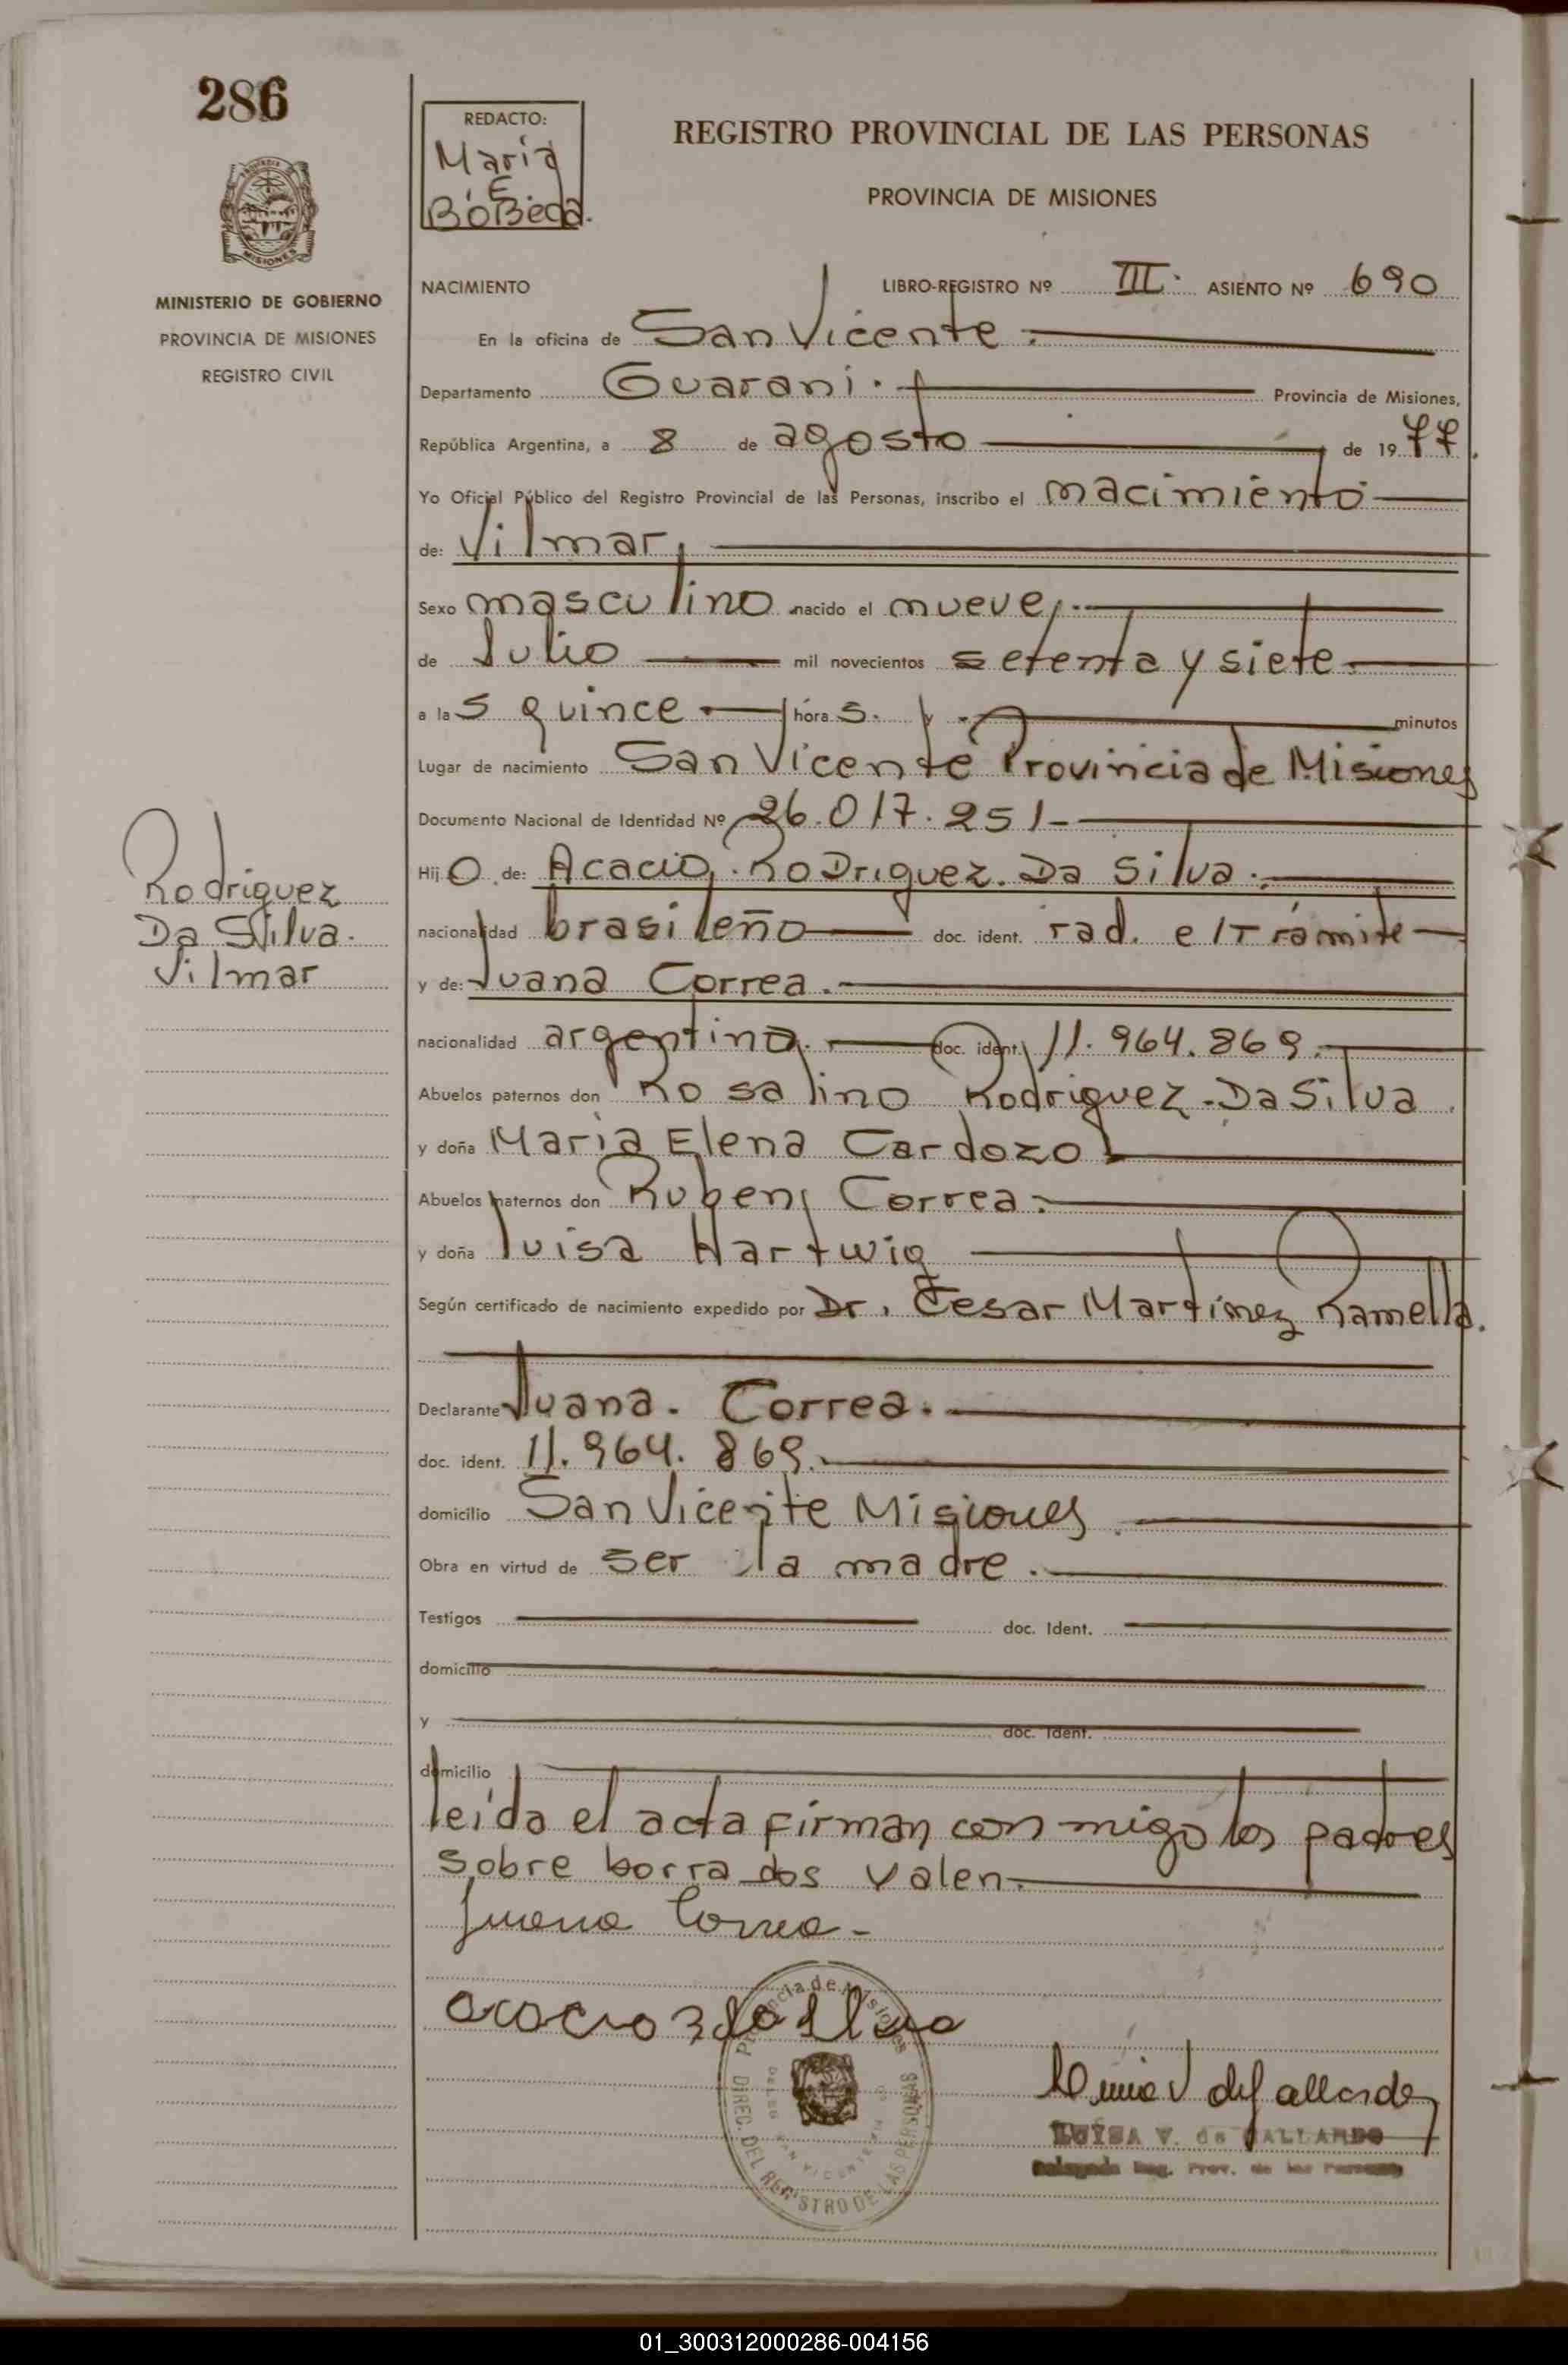 286
REDACTO:
Maria
E.
BóBeda.
REGISTRO PROVINCIAL DE LAS PERSONAS
PROVINCIA DE MISIONES
MISIONES
MINISTERIO DE GOBIERNO
PROVINCIA DE MISIONES
REGISTRO CIVIL
NACIMIENTO LIBRO-REGISTRO Nº III. ASIENTO Nº 690
En la oficina de San Vicente.
Departamento Guarani. Provincia de Misiones,
República Argentina, a 8 de agosto de 1977.
Yo Oficial Público del Registro Provincial de las Personas, inscribo el nacimiento
de: Vilmar,
Sexo masculino nacido el nueve,
de Julio mil novecientos setenta y siete
a las quince horas. y minutos
Lugar de nacimiento San Vicente Provincia de Misiones
Documento Nacional de Identidad Nº 26.017.251
Hijo de: Acacio, Rodriguez. Da Silva.
nacionalidad brasileño doc. ident. rad. e/Trámite
y de: Juana Correa.
nacionalidad argentina. doc. ident. 11.964.869.
Abuelos paternos don Rosalino Rodriguez-Da Silva
y doña Maria Elena Cardozo
Abuelos maternos don Ruben, Correa.
y doña luisa Hartwig
Según certificado de nacimiento expedido por Dr. Cesar Martínez Ramella.
Declarante Juana. Correa.
doc. ident. 11.964.869.
domicilio San Vicente Misiones
Obra en virtud de ser la madre.
Testigos doc. Ident.
domicilio
y doc. Ident.
domicilio
leida el acta firman con migo los padres
sobre borrados valen.
Juana Correa-
LUISA V. de GALLARDO
Delegada Reg. Prov. de las Personas
Provincia de Misiones
DIREC. DEL REGISTRO DE LAS PERSONAS
Rodriguez
Da Silva.
Vilmar
01_300312000286-004156